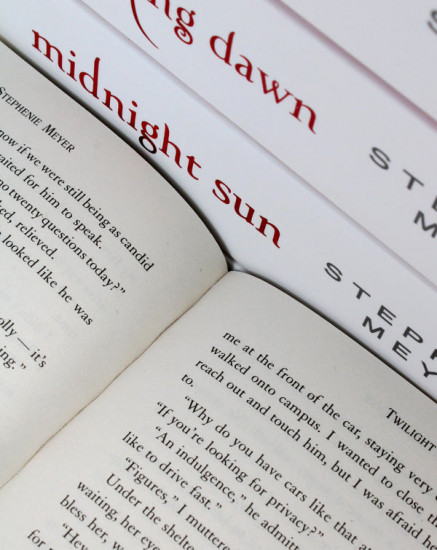 dawn
midnight sun
STEPHENIE MEYER
now if we were still being as candid
waited for him to speak.
no twenty questions today?”
relieved.
looked like he was
it's
TWILIGHT
me at the front of the car, staying very
walked onto campus. I wanted to close th
reach out and touch him, but I was afraid he
to.
“Why do you have cars like that
“If you're looking for privacy?”
“An indulgence,” he admitt
like to drive fast.”
“Figures,” I muttere
Under the shelte
waiting, her eye
bless her, w
“Hey
for